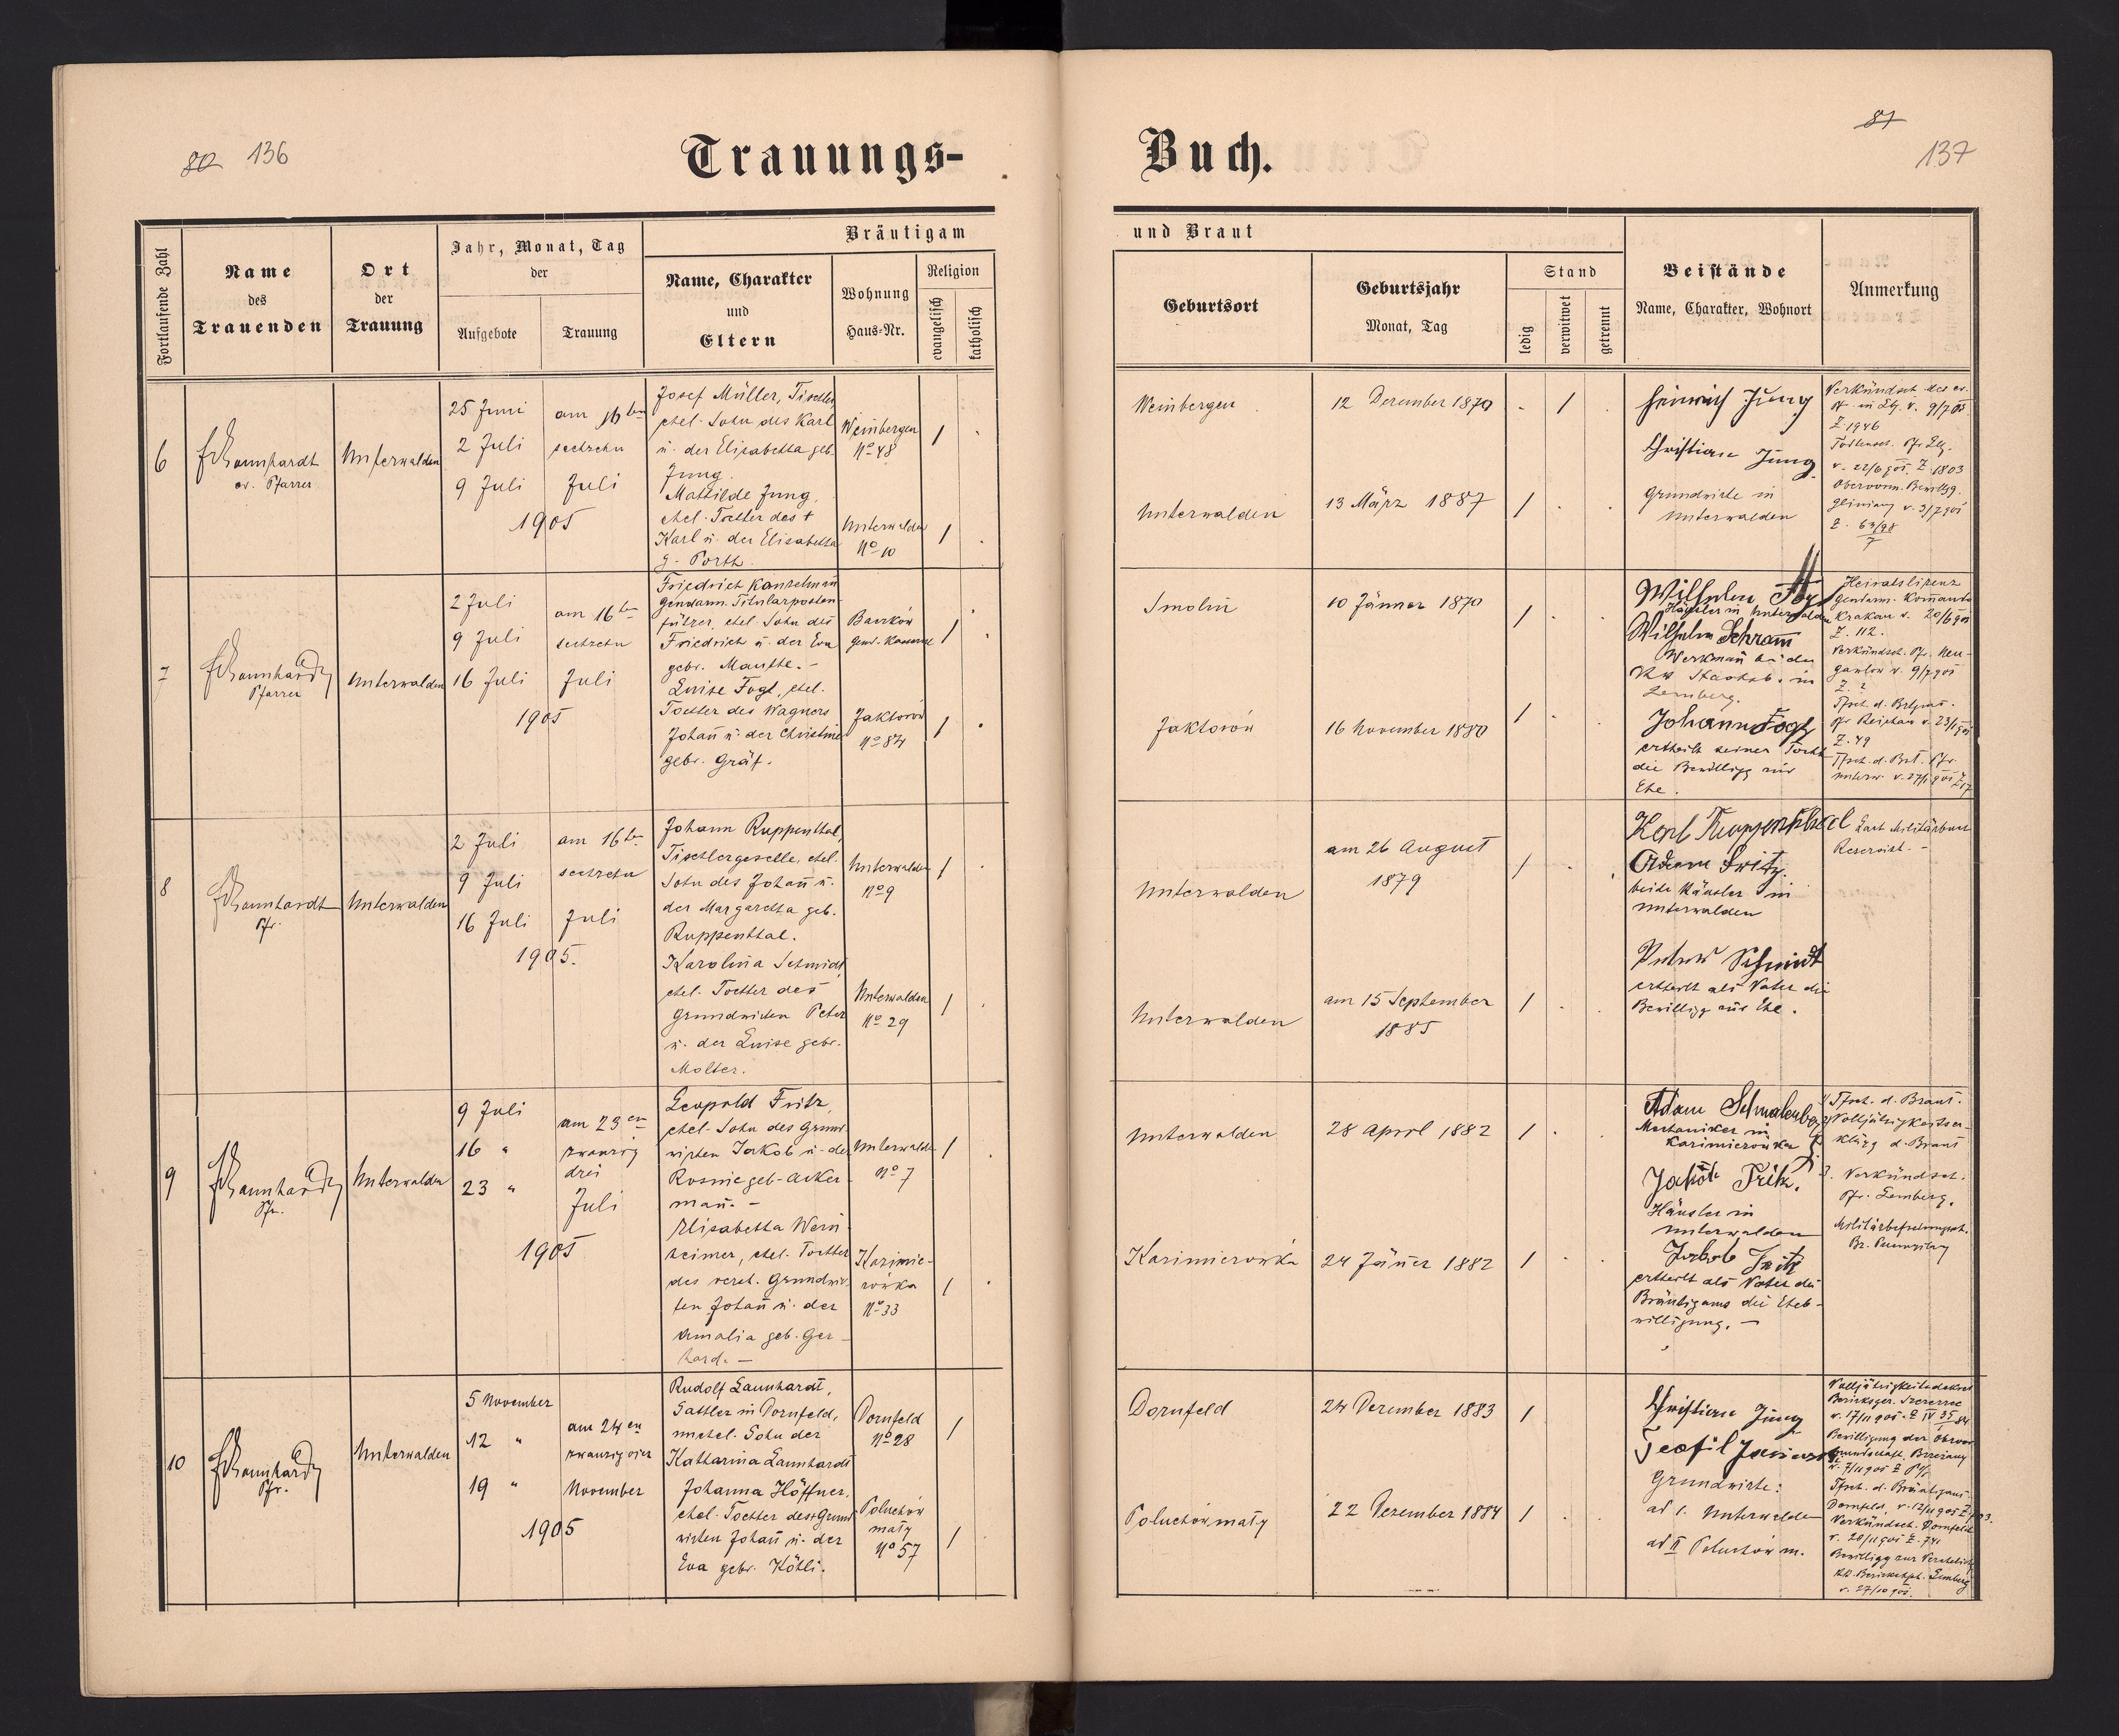 80 136
Trauungs-
Buch.
81
137
Fortlaufende Zahl
Name
des
Trauenden
Ort
der
Trauung
Jahr, Monat, Tag
der
Aufgebote
Trauung
Bräutigam
Name, Charakter
und
Eltern
Wohnung
Haus-Nr.
Religion
evangelisch
katholisch
und Braut
Geburtsort
Geburtsjahr
Monat, Tag
Stand
ledig
verwitwet
getrennt
Beistände
Name, Charakter, Wohnort
Anmerkung
6
ev. Pfarrer
Unterwalden
25 Juni
2 Juli
9 Juli
am 16ten
sechzehn
Juli
1905
Josef Müller, Tischler,
ehel. Sohn des Karl
u. der Elisabetha geb.
Jung.
Mathilde Jung,
ehel. Tochter des +
Karl u. der Elisabetha
g. Porth.
Weinbergen
No 48
Unterwalden
No 10
1
1
Weinbergen
12 Dezember 1870
1
Unterwalden
13 März 1887
1
Heinrich Jung
Christian Jung
Grundwirte in
Unterwalden
Verkündsch. des ev.
Pf. in Lbg. v. 9/7 05
Z. 1946
Todtensch. Pfr. Lbg.
v. 22/6 905. Z. 1803
Obervorm. Bewillgg.
v. 3/7 905
Z. 63/98
7
7
Pfarrer
Unterwalden
2 Juli
9 Juli
16 Juli
am 16ten
sechzehn
Juli
1905
Friedrich Konzelmann
Gendarm. Titularposten-
führer, ehel. Sohn des
Friedrich u. der Eva
gebr. Manthe. -
Luise Fogl, ehel.
Tochter des Wagners
Johann u. der Christine
gebr. Gräf.
Gend. Kaserne
Jaktorów
No 84
1
1
Smolin
10 Jänner 1870
1
Jaktorów
16 November 1880
1
Wilhelm Fogl
Häusler in Unterwalden
Wilhelm Schramm
Werkmann bei der
in
Lemberg.
Johann Fogl
ertheilt seiner Tochter
die Bewilligg zur
Ehe.
Heiratslizenz
Gendarm. Kommando
Krakau v. 20/6 905
Z. 112.
Verkündsch. Pfr. Neu-
v. 9/7 905
Z. ?
Tfsch. d. Brtgms.
Pfr. Reichau v. 23/1 905
Z. 49
Tfsch. d. Brt. Pfr.
Unterw. v. 27/1 905 Z 17
8
Pfr.
Unterwalden
2 Juli
9 Juli
16 Juli
am 16ten
sechzehn
Juli
1905.
Johann Ruppenthal,
Tischlergeselle, ehel.
Sohn des Johann u.
der Margaretha geb.
Ruppenthal.
Karolina Schmidt,
ehel. Tochter des
Grundwirten Peter
u. der Luise gebr.
Molter.
Unterwalden
No 9
Unterwalden
No 29
1
1
Unterwalden
am 26 August
1879
1
Unterwalden
am 15 September
1885
1
Karl Ruppenthal
Adam Fritz.
beide Häusler in
Unterwalden
Peter Schmidt
ertheilt als Vater die
Bewilligg zur Ehe.
Laut Militärbuch
Reservist. -
9
Pfr.
Unterwalden
9 Juli
16 "
23 "
am 23en
zwanzig
drei
Juli
1905
Leopold Fritz,
ehel. Sohn des Grund-
wirten Jakob u. der
Rosine geb. Acker-
mann. -
Elisabetha Wein-
heimer, ehel. Tochter
des verst. Grundwir-
ten Johann u. der
Amalia geb. Ger-
hard. -
Unterwalden
No 7
Kazimie-
rówka
No 33
1
1
Unterwalden
28 April 1882
1
Kazimierówka
24 Jänner 1882
1
Adam Schmalenberg
Mechaniker in
Kazimierówka
Jakob Fritz.
Häusler in
Unterwalden
Jakob Fritz
ertheilt als Vater des
Bräutigams die Eheb-
willigung. -
1/ Tfsch. d. Braut.
2/ Volljährigkeitser-
klärg d. Braut
3. Verkündsch.
Pfr. Lemberg.
10
Pfr.
Unterwalden
5 November
12 "
19 "
am 24en
zwanzigvier
November
1905
Rudolf Launhardt,
Sattler in Dornfeld,
unehel. Sohn der
Katharina Launhardt
Johanna Höffner,
ehel. Tochter des + Grund-
wirten Johann u. der
Eva gebr. Köhli.
Dornfeld
No 28
Poluchów
mały
No 57
1
1
Dornfeld
24 Dezember 1883
1
Poluchów mały
22 Dezember 1884
1
Christian Jung
Teofil
Grundwirte:
ad 1. Unterwalden
ad II Poluchów m.
Volljährigkeitsdekret
Bezirksger. Szczerzec
v. 17/11 905. Z IV 35/84
Bewilligung der Obervor-
mundschaft
v. 7/11 905 Z
Tfsch. d. Bräutigams
Dornfeld v. 12/11 905 Z 703.
Verkündsch. Dornfeld
v. 20/11 905 Z. 741
Bewilligg zur Verehelichg
Lemberg
v. 27/10 905.